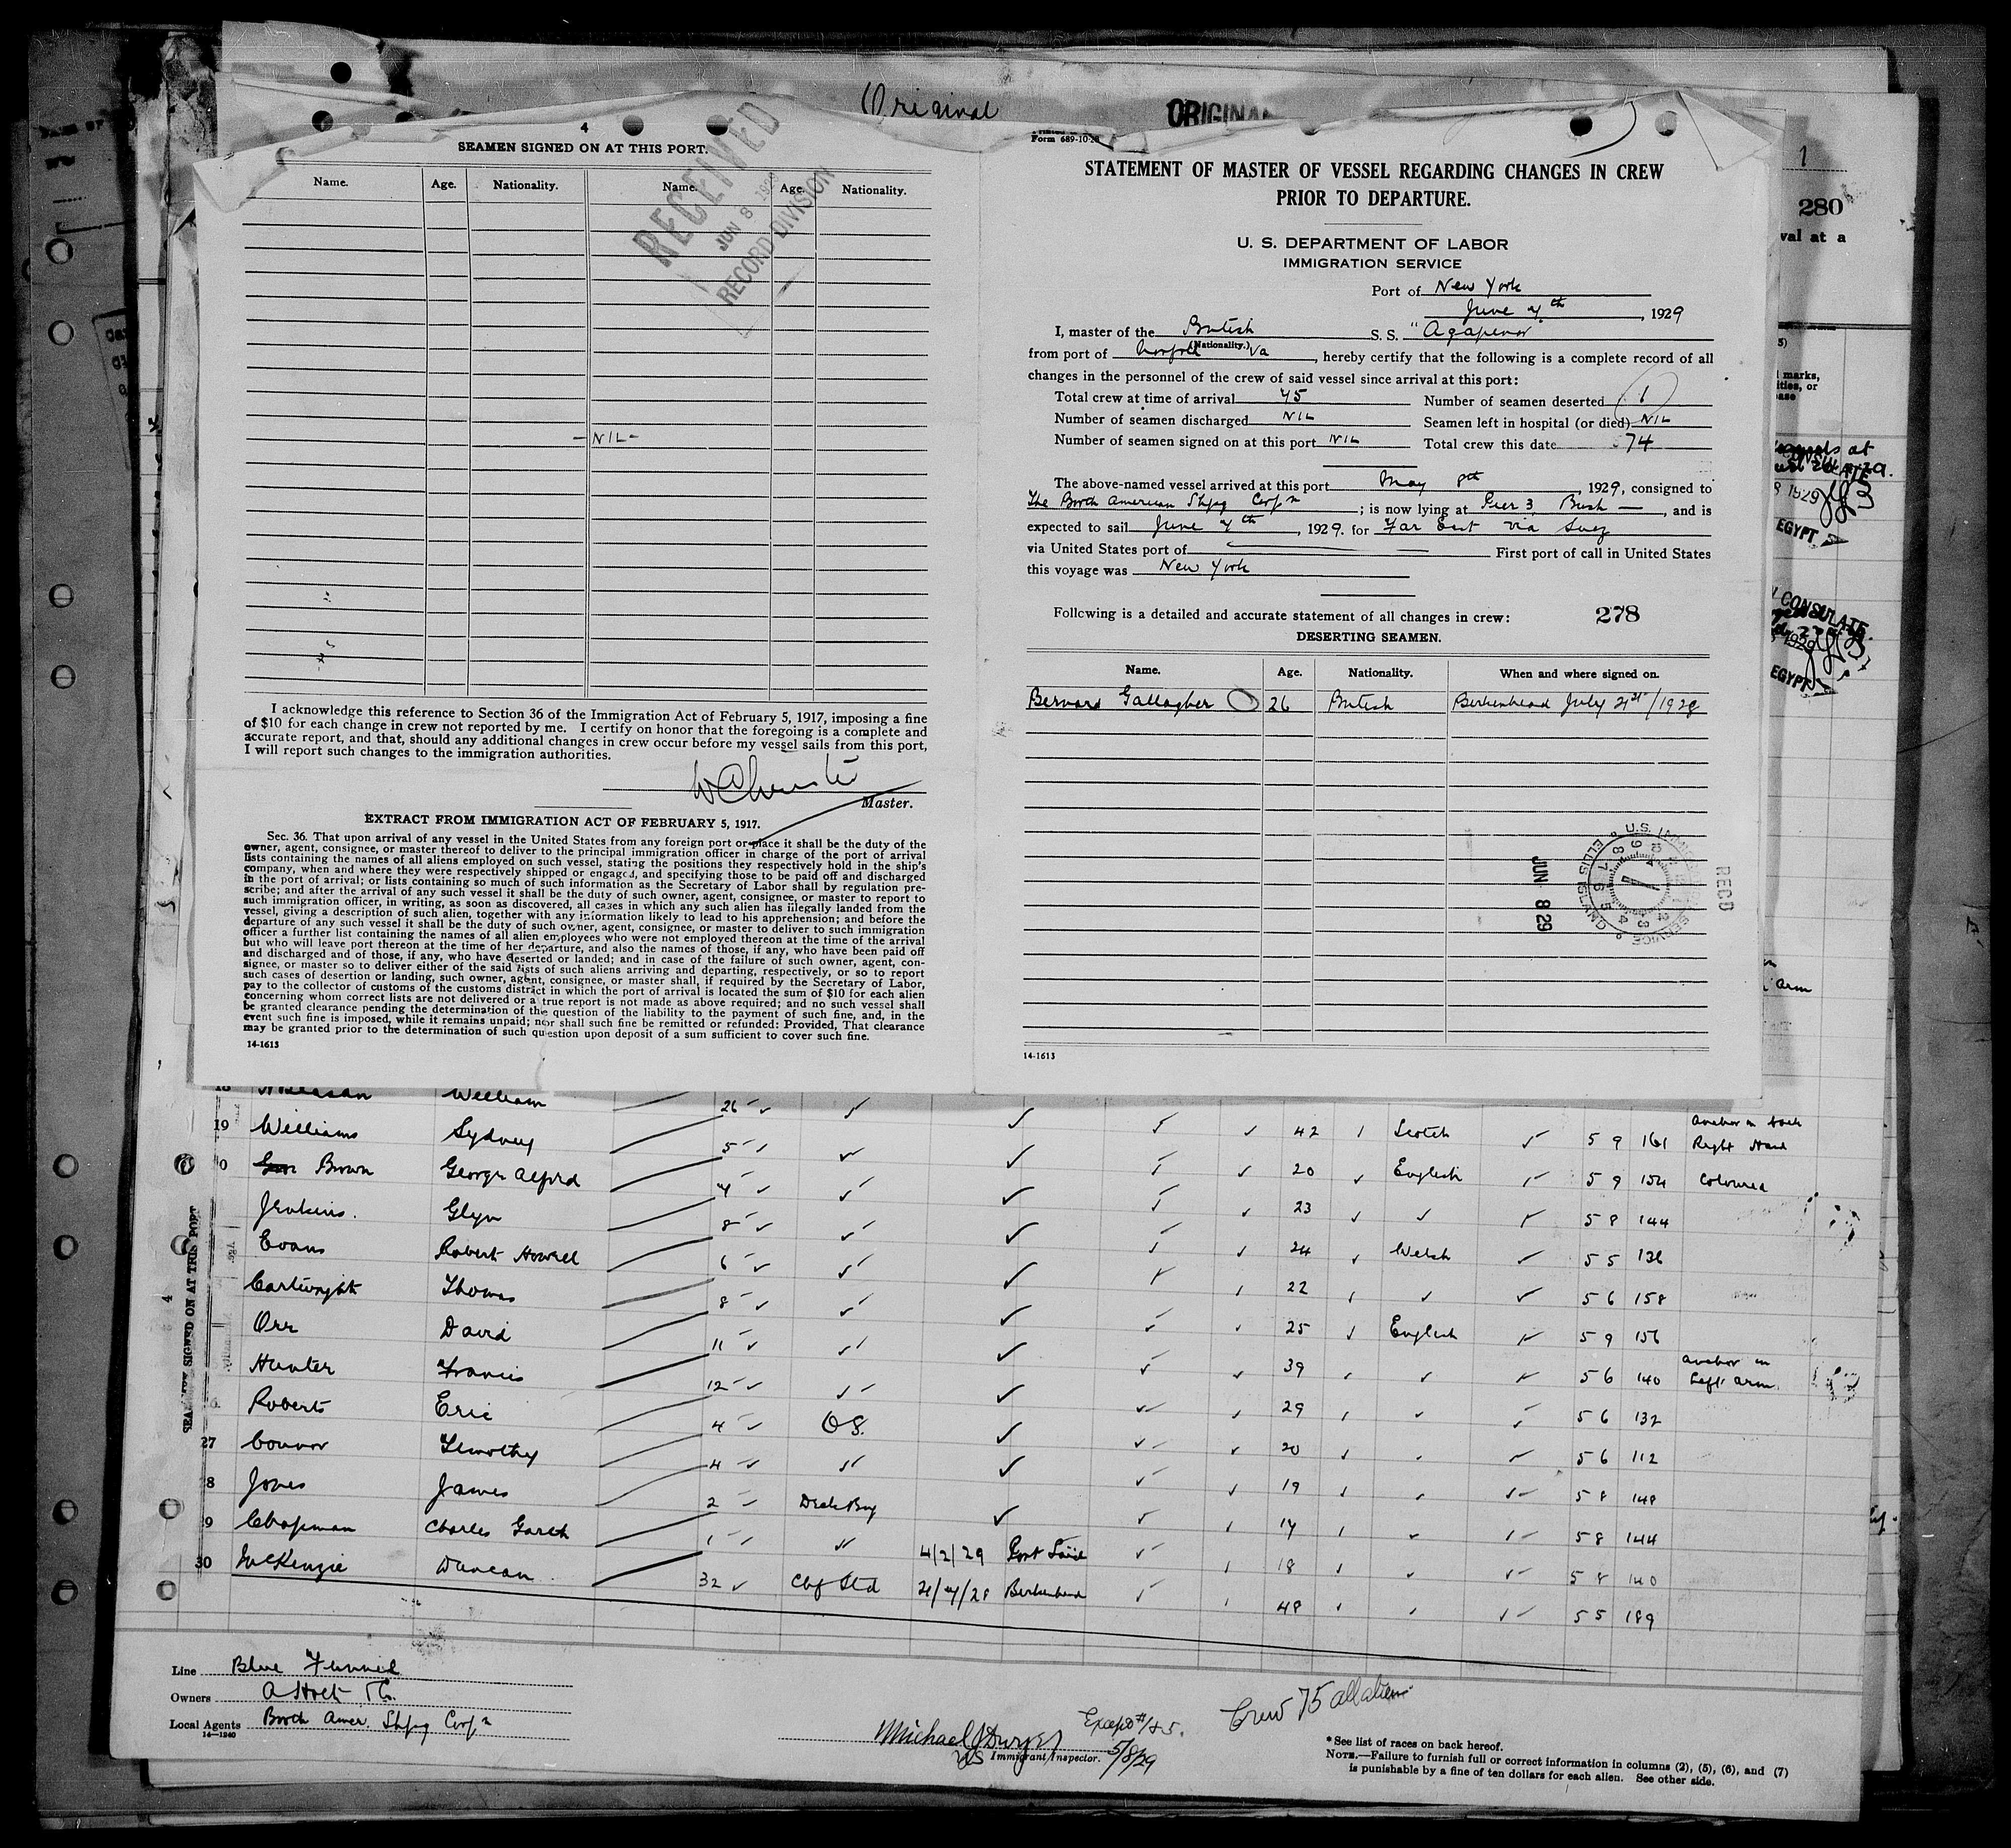 Original
ORIGINAL
4
SEAMEN SIGNED ON AT THIS PORT.
Name. Age. Nationality. Name. Age. Nationality.
RECEIVED
JUN 8 1929
RECORD DIVISION
- NIL -
I acknowledge this reference to Section 36 of the Immigration Act of February 5, 1917, imposing a fine
of $10 for each change in crew not reported by me. I certify on honor that the foregoing is a complete and
accurate report, and that, should any additional changes in crew occur before my vessel sails from this port,
I will report such changes to the immigration authorities.
Master.
EXTRACT FROM IMMIGRATION ACT OF FEBRUARY 5, 1917.
Sec. 36. That upon arrival of any vessel in the United States from any foreign port or place it shall be the duty of the
owner, agent, consignee, or master thereof to deliver to the principal immigration officer in charge of the port of arrival
lists containing the names of all aliens employed on such vessel, stating the positions they respectively hold in the ship's
company, when and where they were respectively shipped or engaged, and specifying those to be paid off and discharged
in the port of arrival; or lists containing so much of such information as the Secretary of Labor shall by regulation pre-
scribe; and after the arrival of any such vessel it shall be the duty of such owner, agent, consignee, or master to report to
such immigration officer, in writing, as soon as discovered, all cases in which any such alien has illegally landed from the
vessel, giving a description of such alien, together with any information likely to lead to his apprehension; and before the
departure of any such vessel it shall be the duty of such owner, agent, consignee, or master to deliver to such immigration
officer a further list containing the names of all alien employees who were not employed thereon at the time of the arrival
but who will leave port thereon at the time of her departure, and also the names of those, if any, who have been paid off
and discharged and of those, if any, who have deserted or landed; and in case of the failure of such owner, agent, con-
signee, or master so to deliver either of the said lists of such aliens arriving and departing, respectively, or so to report
such cases of desertion or landing, such owner, agent, consignee, or master shall, if required by the Secretary of Labor,
pay to the collector of customs of the customs district in which the port of arrival is located the sum of $10 for each alien
concerning whom correct lists are not delivered or a true report is not made as above required; and no such vessel shall
be granted clearance pending the determination of the question of the liability to the payment of such fine, and, in the
event such fine is imposed, while it remains unpaid; nor shall such fine be remitted or refunded: Provided, That clearance
may be granted prior to the determination of such question upon deposit of a sum sufficient to cover such fine.
14-1613
Form 689-10-
STATEMENT OF MASTER OF VESSEL REGARDING CHANGES IN CREW
PRIOR TO DEPARTURE.
U. S. DEPARTMENT OF LABOR
IMMIGRATION SERVICE
Port of New York
June 7th, 1929
I, master of the British S. S. "Agapenor"
(Nationality.)
from port of Norfolk Va, hereby certify that the following is a complete record of all
changes in the personnel of the crew of said vessel since arrival at this port:
Total crew at time of arrival 75 Number of seamen deserted 1
Number of seamen discharged NIL Seamen left in hospital (or died) NIL
Number of seamen signed on at this port NIL Total crew this date 74
The above-named vessel arrived at this port May 8th, 1929, consigned to
The Booth American Shpg Corpn; is now lying at Pier 3 Bush —, and is
expected to sail June 7th, 1929. for Far East via Suez
via United States port of — First port of call in United States
this voyage was New York
Following is a detailed and accurate statement of all changes in crew: 278
DESERTING SEAMEN.
Name. Age. Nationality. When and where signed on.
Bernard Gallagher 26 British Birkenhead July 21st/1928
JUN 8 29
REC'D
14-1613
1
280
val at a
marks,
ities, or
EGYPT
CONSULATE
EGYPT
arm
William 26
19 Williams Sydney 5 42 1 Scotch 5 9 161 Anchor on back Right Hand
0 Brown George Alfred 7 20 English 5 9 154 Coloured
Jenkins. Glyn 8 23 5 8 144
Evans Robert Howell 6 24 Welsh 5 5 136
Cartwright Thomas 8 22 5 6 158
Orr David 11 25 English 5 9 156
Hunter Francis 12 39 5 6 140 Anchor on Left arm
Roberts Eric 4 O S. 29 5 6 132
27 Connor Timothy 4 20 5 6 112
8 Jones James 2 Deck Boy 19 5 8 148
9 Chapman Charles Gareth 1 4/2/29 Port Said 17 5 8 144
30 McKenzie Duncan 32 Chf Std 21/7/28 Birkenhead 18 5 8 140
48 5 5 189
SEAMEN SIGNED ON AT THIS PORT
4
Line Blue Funnel
Owners A Holt & Co.
Local Agents Booth Amer. Shpg Corpn
14—1240
Michael J Dwyer
US Immigrant Inspector. 5/8/29
Except #1 & 5.
Crew 75 all aliens
* See list of races on back hereof.
NOTE.—Failure to furnish full or correct information in columns (2), (5), (6), and (7)
is punishable by a fine of ten dollars for each alien. See other side.